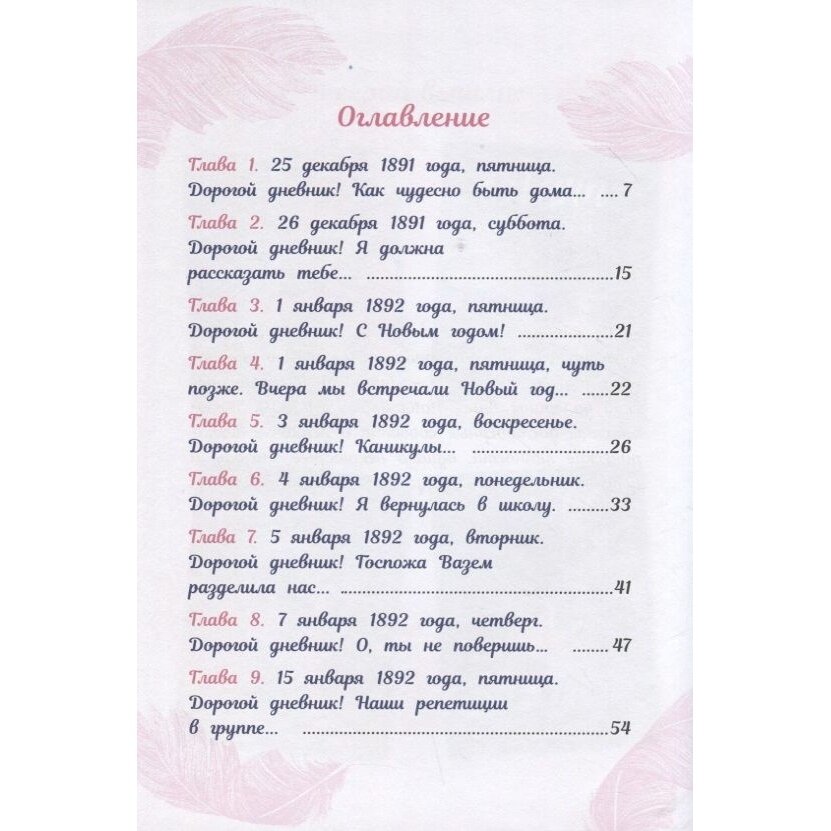 Оглавление
Глава 1. 25 декабря 1891 года, пятница.
Дорогой дневник! Как чудесно быть дома... ....7
Глава 2. 26 декабря 1891 года, суббота.
Дорогой дневник! Я должна
рассказать тебе... ....................................................15
Глава 3. 1 января 1892 года, пятница.
Дорогой дневник! С Новым годом! ....................21
Глава 4. 1 января 1892 года, пятница, чуть
позже. Вчера мы встречали Новый год... ......22
Глава 5. 3 января 1892 года, воскресенье.
Дорогой дневник! Каникулы... .............................26
Глава 6. 4 января 1892 года, понедельник.
Дорогой дневник! Я вернулась в школу. .........33
Глава 7. 5 января 1892 года, вторник.
Дорогой дневник! Госпожа Вазем
разделила нас... .........................................................41
Глава 8. 7 января 1892 года, четверг.
Дорогой дневник! О, ты не поверишь... ........47
Глава 9. 15 января 1892 года, пятница.
Дорогой дневник! Наши репетиции
в группе... .................................................................54